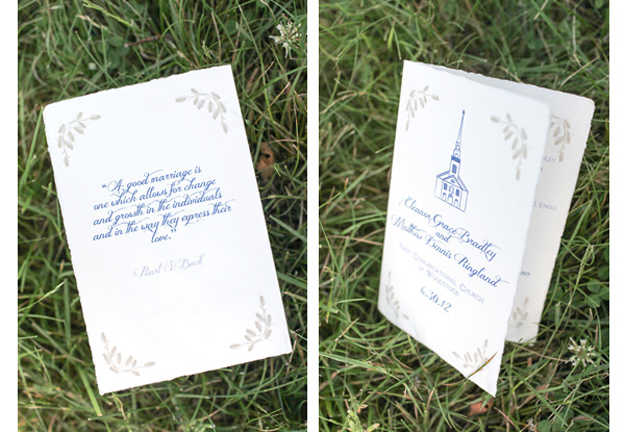 “A good marriage is
one which allows for change
and growth in the individuals
and in the way they express their
love.”
Pearl S. Buck
Eleanor Grace Bradley
and
Matthew Dennis Ringland
First Congregational Church
of Woodstock
6.30.12